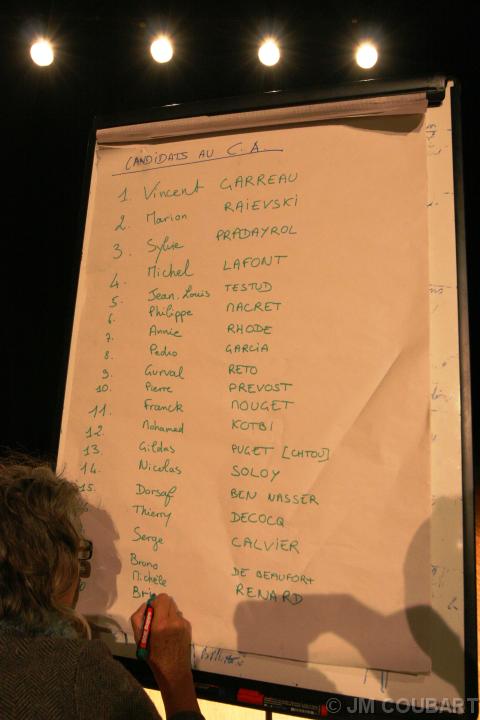 CANDIDATS AU C.A.
1. Vincent GARREAU
2. Marion RAIEVSKI
3. Sylvie PRADAYROL
4. Michel LAFONT
5. Jean-Louis TESTUD
6. Philippe MACRET
7. Annie RHODE
8. Pedro GARCIA
9. Gurval RETO
10. Pierre PREVOST
11. Franck NOUGET
12. Mohamed KOTBI
13. Gildas PUGET [CHTOU]
14. Nicolas SOLOY
15. Dorsaf BEN NASSER
Thierry DECOCQ
Serge CALVIER
Bruno DE BEAUFORT
Michèle RENARD
Bri
© JM COUBART